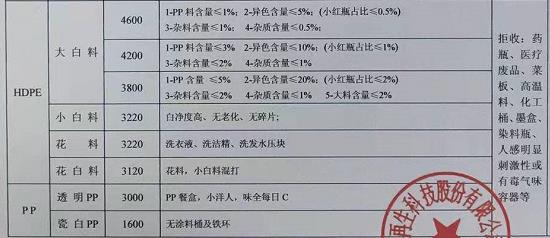 HDPE
大白料
4600
1-PP料含量≤1%；2-异色含量≤5%；(小红瓶占比≤0.5%)
3-杂料含量≤1%； 4-杂质含量≤0.5%;
4200
1-PP料含量≤3% 2-异色含量≤10%；(小红瓶占比≤1%)
3-杂料含量≤2% 4-杂质含量≤1%
3800
1-PP含量 ≤5% 2-异色含量≤20%；(小红瓶占比≤2%)
3-杂料含量≤2% 4-杂质含量≤1% 5-大料含量≤2%
小白料 3220 白净度高、无老化、无碎片;
花料 3220 洗衣液、洗洁精、洗发水压块
花白料 3120 花料，小白料混打
PP
透明PP 3000 PP餐盒，小洋人，味全每日C
瓷白PP 1600 无涂料桶及铁环
拒收：药
瓶、医疗
废品、菜
板、高温
料、化工
桶、墨盒、
染料瓶、
人感明显
刺激性或
有毒气味
容器等
再生科技股份有限公